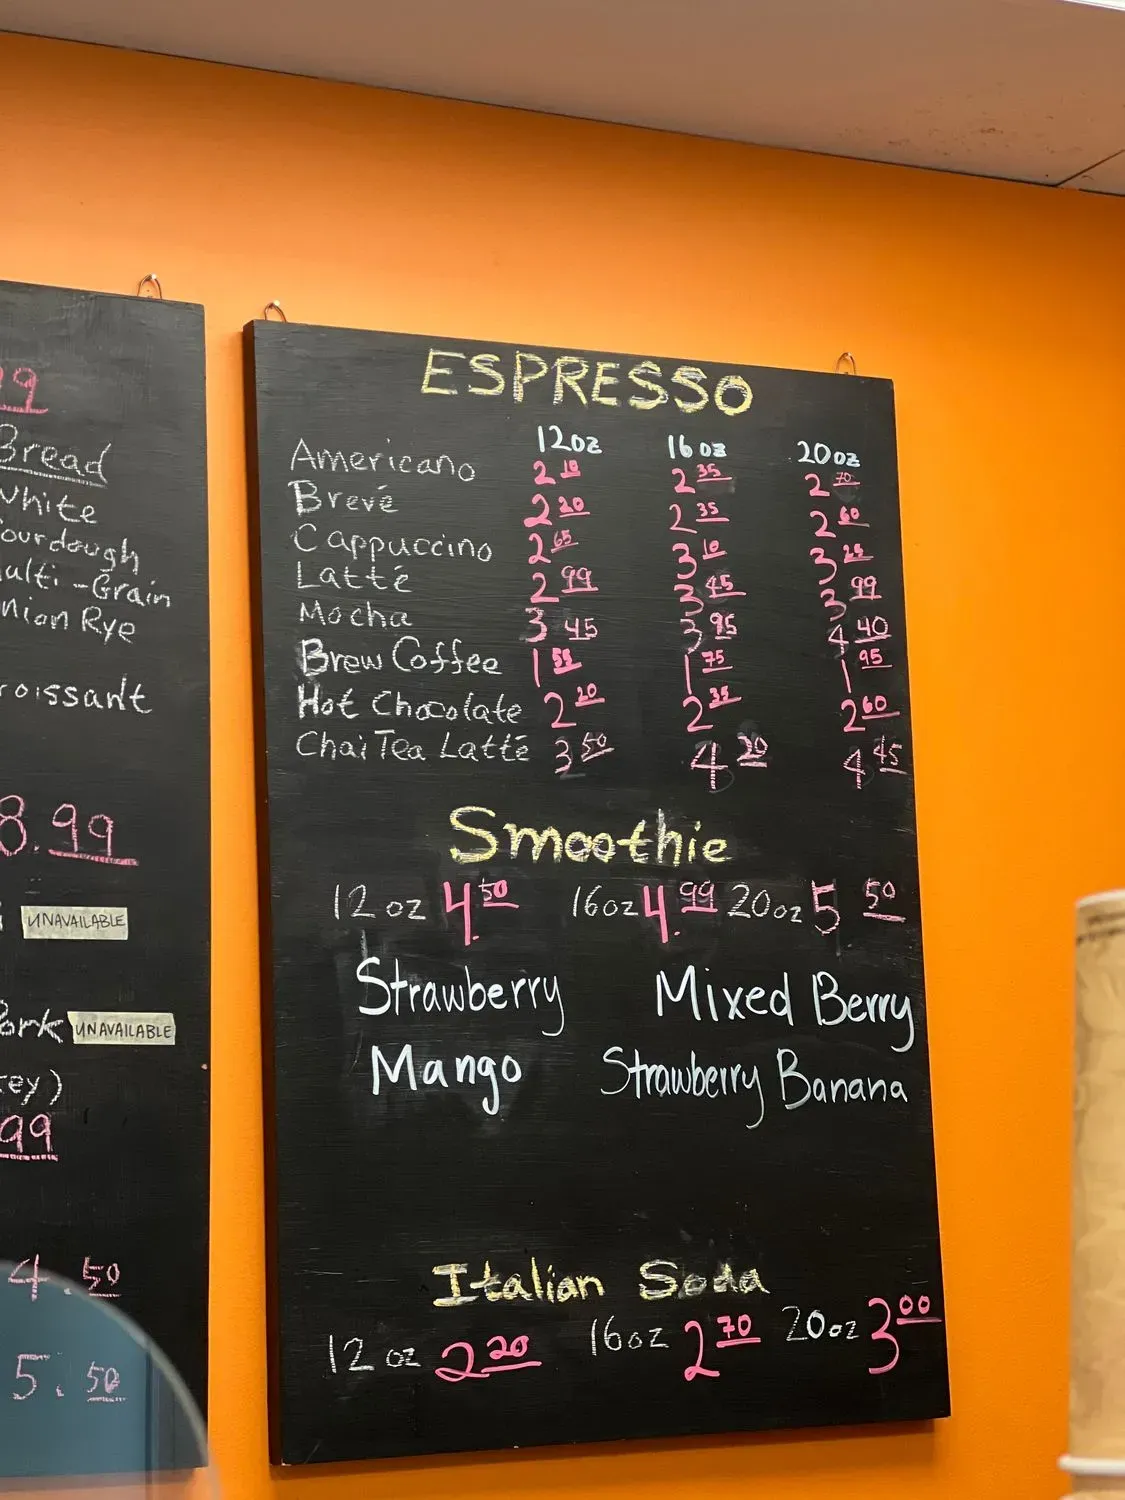 99
Bread
White
ourdough
ulti-Grain
nion Rye
roissant
8.99
UNAVAILABLE
ork UNAVAILABLE
key)
99
4.50
5.50
ESPRESSO
12oz 16oz 20oz
Americano 2 10 2 35 2 70
Brevé 2 20 2 35 2 60
Cappuccino 2 65 3 10 3 25
Latté 2 99 3 45 3 99
Mocha 3 45 3 95 4 40
Brew Coffee 1 55 1 75 1 95
Hot Chocolate 2 20 2 35 2 60
Chai Tea Latté 3 50 4 20 4 45
Smoothie
12 oz 4.50 16oz 4.99 20oz 5 50
Strawberry Mixed Berry
Mango Strawberry Banana
Italian Soda
12 oz 2 20 16oz 2 70 20oz 3 00